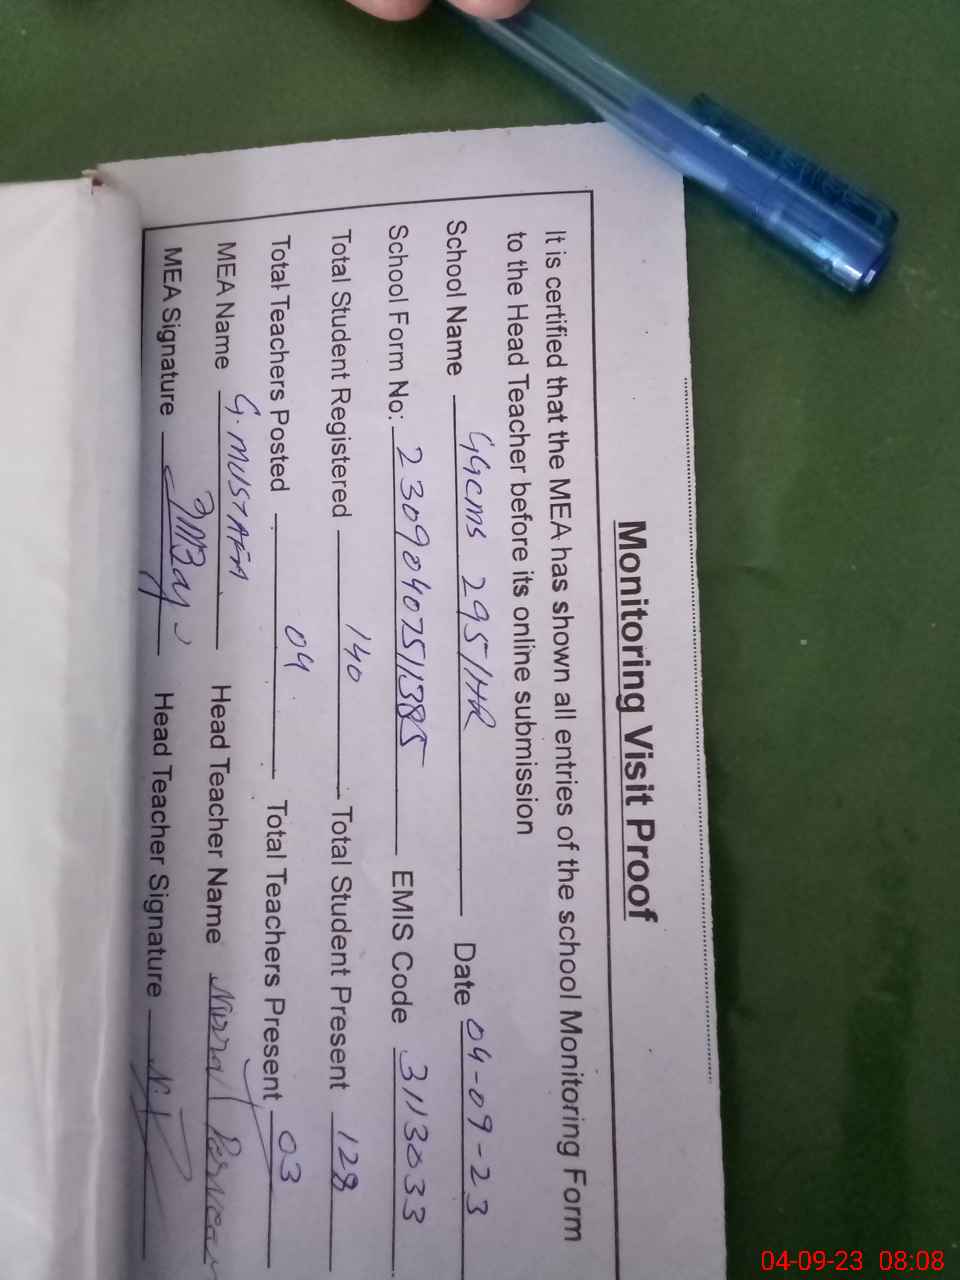 Monitoring Visit Proof
It is certified that the MEA has shown all entries of the school Monitoring Form
to the Head Teacher before its online submission
School Name GGCMS 295/HR Date 04-09-23
School Form No: 23090407511385 EMIS Code 3113033
Total Student Registered 140 Total Student Present 128
Total Teachers Posted 04 Total Teachers Present 03
MEA Name G. MUSTAFA Head Teacher Name
MEA Signature Head Teacher Signature
04-09-23 08:08